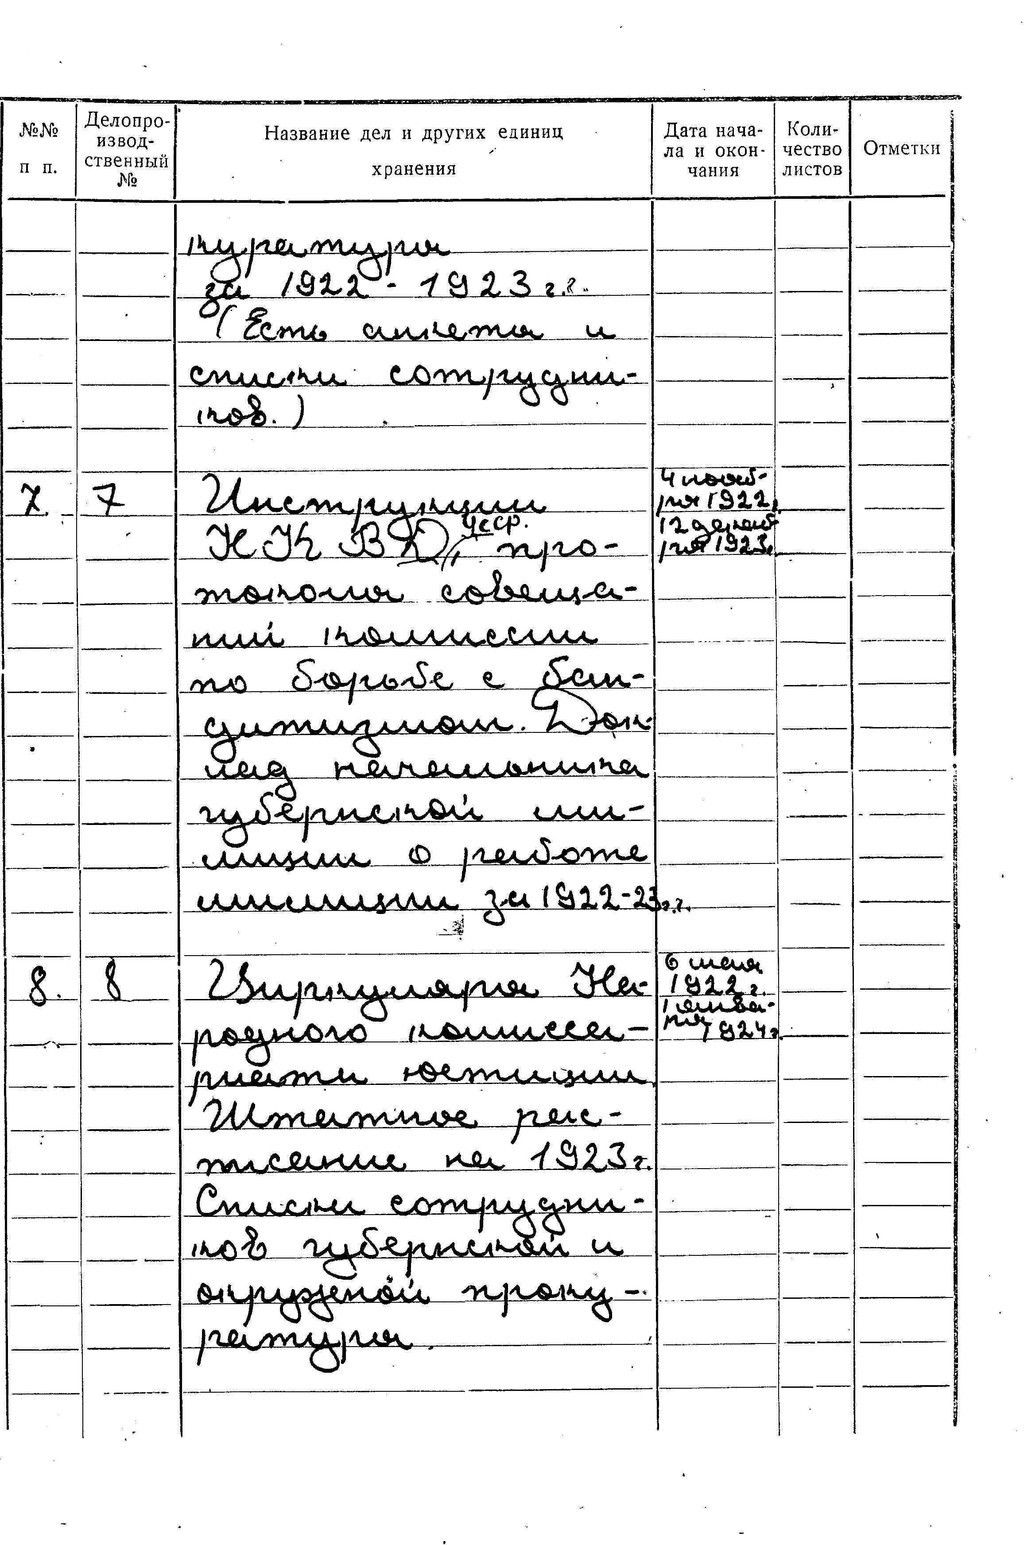 №№ п п.
Делопро-
извод-
ственный
№
Название дел и других единиц
хранения
Дата нача-
ла и окон-
чания
Коли-
чество
листов
Отметки
куратуры
за 1922 - 1923 г.г.
(Есть анкеты и
списки сотрудни-
ков.)
7. 7 Инструкции
НКВД УССР, про-
токолы совеща-
ний комиссии
по борьбе с бан-
дитизмом. Док-
лад начальника
губернской ми-
лиции о работе
милиции за 1922-23 г.г.
4 нояб-
ря 1922г.
12 декаб
ря 1923г.
8. 8 Циркуляры На-
родного комисса-
риата юстиции.
Штатное рас-
писание на 1923 г.
Списки сотрудни-
ков губернской и
окружной проку-
ратуры.
6 мая
1922 г.
1 янва-
ря 1924 г.